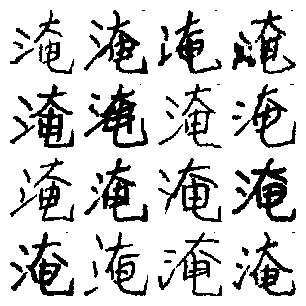 淹淹淹淹
淹淹淹淹
淹淹淹淹
淹淹淹淹